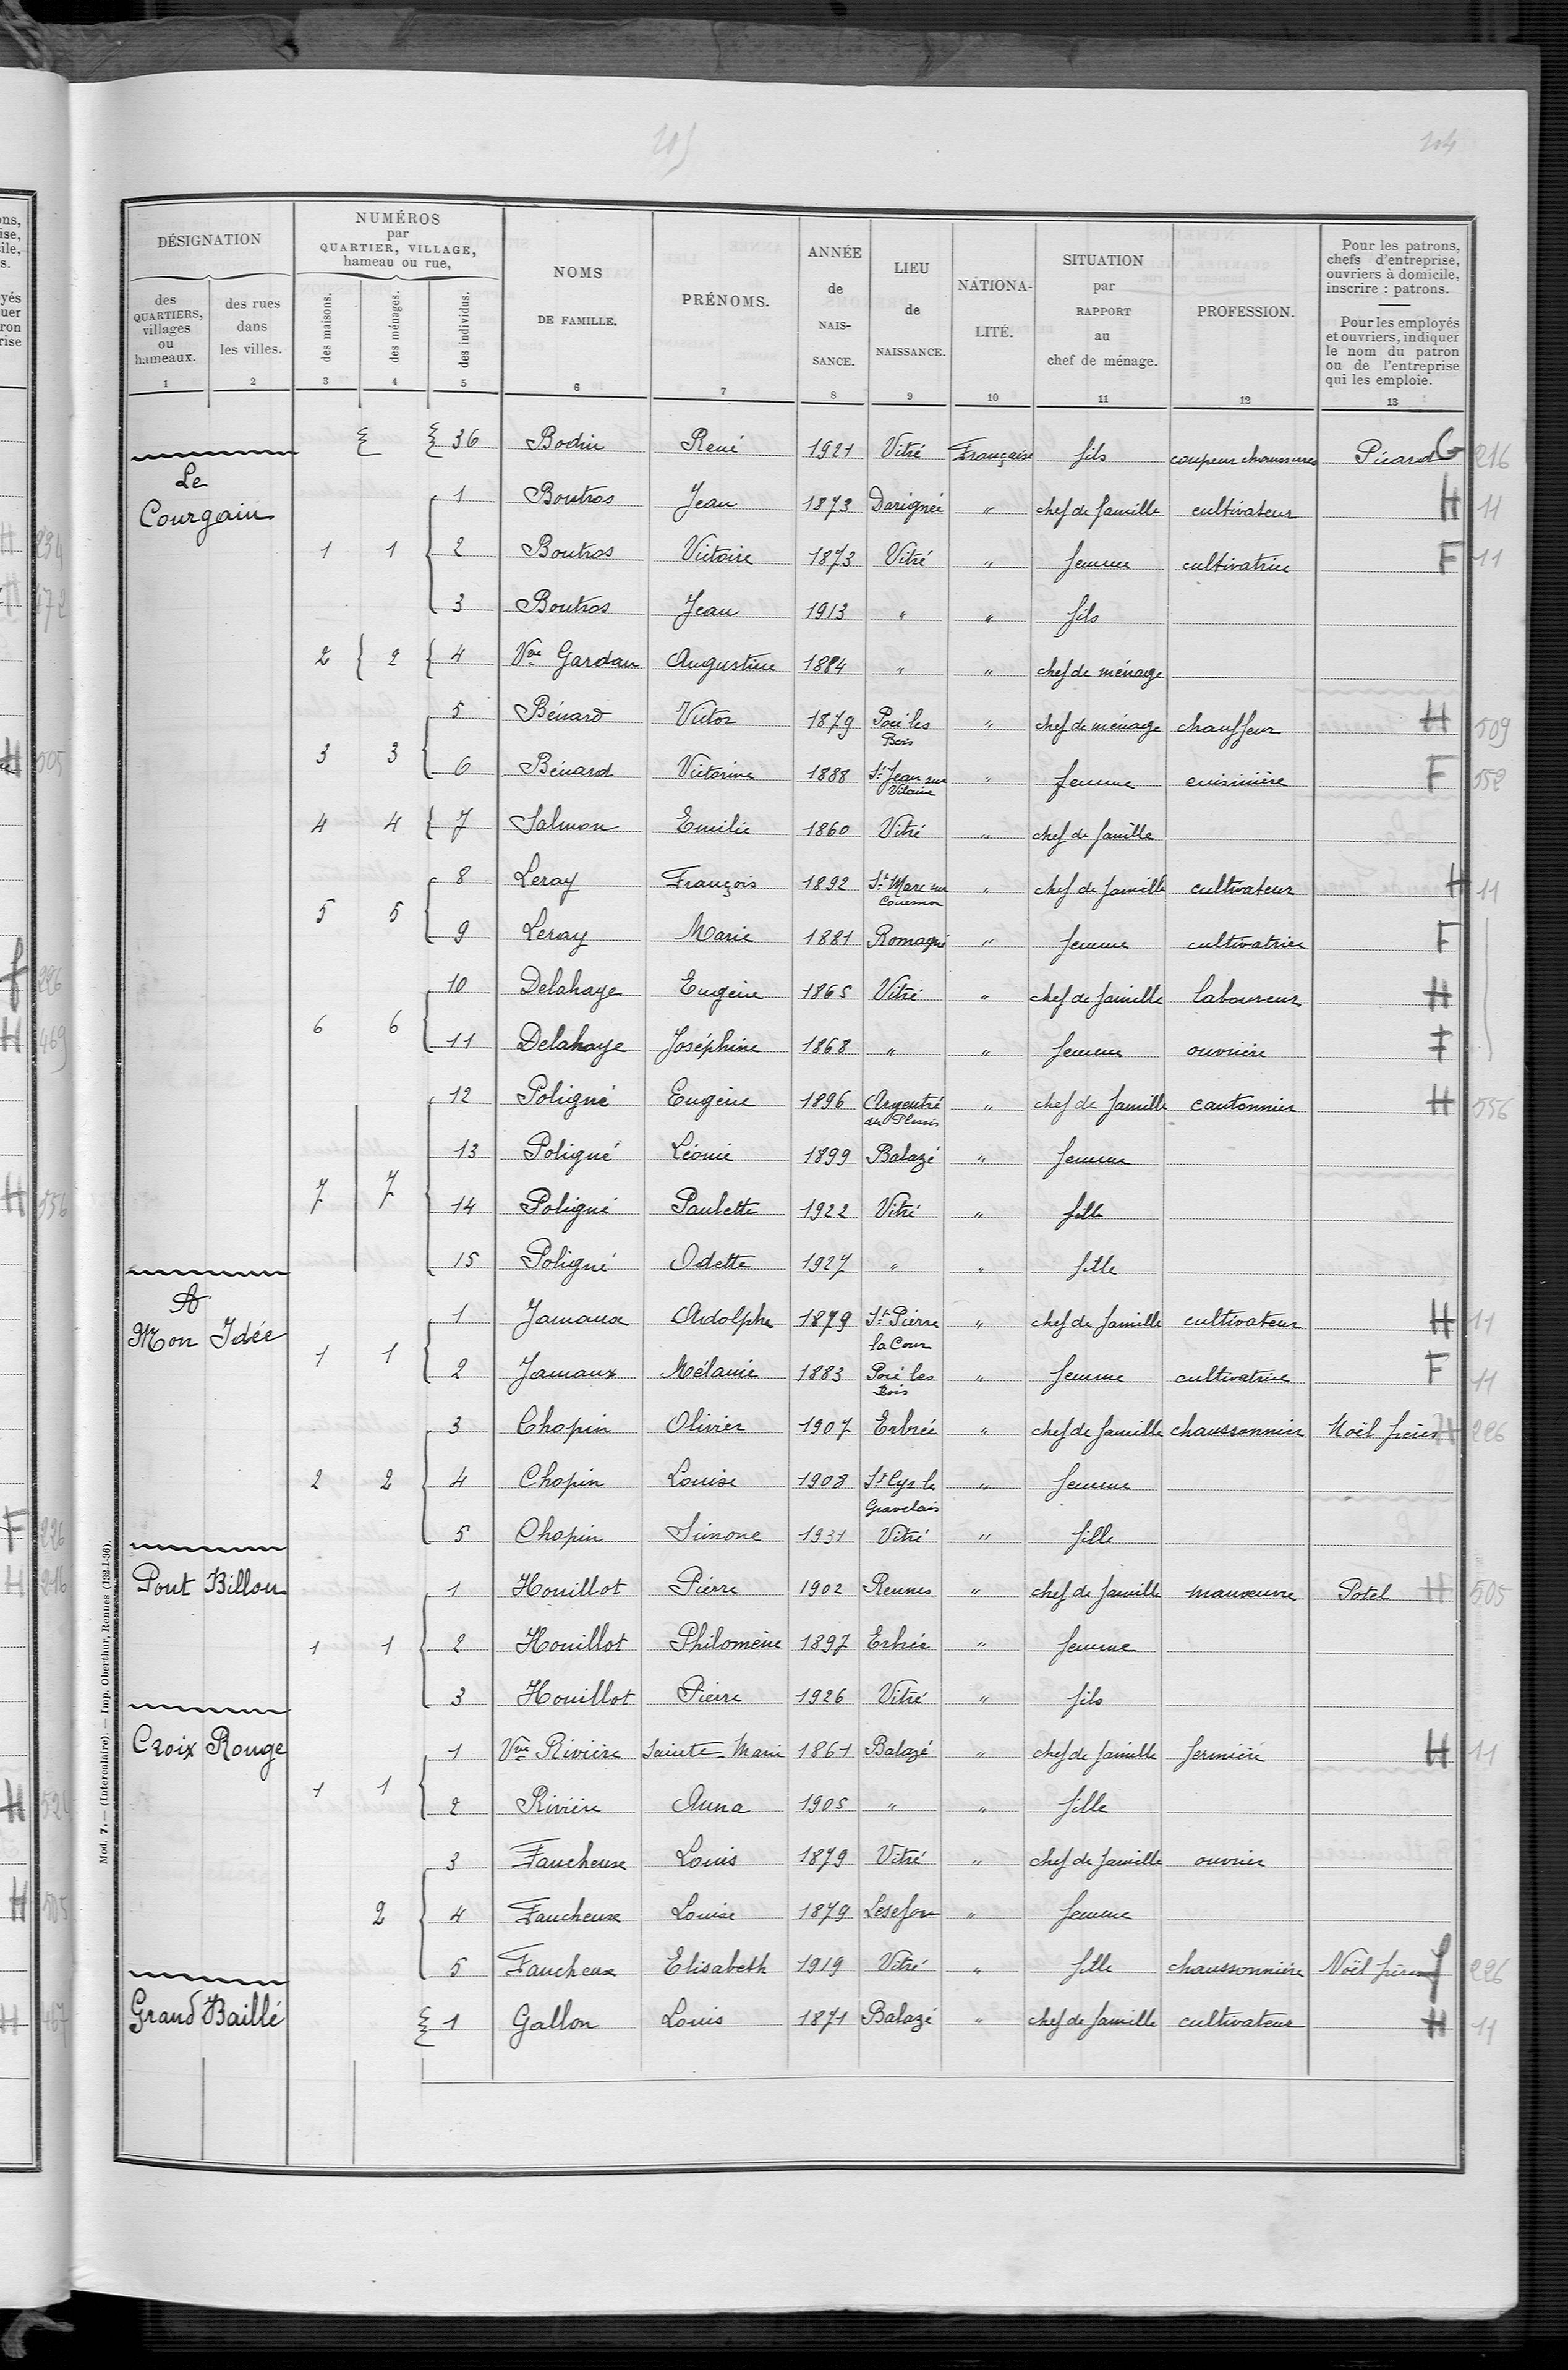 204
DÉSIGNATION
des QUARTIERS, villages ou hameaux.
des rues dans les villes.
NUMÉROS par QUARTIER, VILLAGE, hameau ou rue,
des maisons.
des ménages.
des individus.
NOMS DE FAMILLE.
PRÉNOMS.
ANNÉE de NAIS-SANCE.
LIEU de NAISSANCE.
NATIONA-LITÉ.
SITUATION par RAPPORT au chef de ménage.
PROFESSION.
Pour les patrons, chefs d'entreprise, ouvriers à domicile, inscrire : patrons.
Pour les employés et ouvriers, indiquer le nom du patron ou de l'entreprise qui les emploie.
1 2 3 4 5 6 7 8 9 10 11 12 13
36 Bodin René 1921 Vitré Française fils coupeur chaussures Picard G 216
Le Courgain
1 Boutros Jean 1873 " chef de famille cultivateur H 11
1 1 2 Boutros Victoire 1873 Vitré " femme cultivatrice F 11
3 Boutros Jean 1913 " " fils
2 2 4 Vve Gardan Augustine 1884 " " chef de ménage
5 Bénard Victor 1879 Pocé les Bois " chef de ménage chauffeur H 509
3 3 6 Bénard Victorine 1888 St Jean sur Vilaine " femme cuisinière F 552
4 4 7 Salmon Emilie 1860 Vitré " chef de famille
8 Leray François 1892 St Marc sur Couesnon " chef de famille cultivateur H 11
5 5 9 Leray Marie 1881 Romagné " femme cultivatrice F
10 Delahaye Eugène 1865 Vitré " chef de famille laboureur H
6 6 11 Delahaye Joséphine 1868 " " femme ouvrière F
12 Poligné Eugène 1896 Argentré du Plessis " chef de famille cantonnier H 556
13 Poligné Léonie 1899 Balazé " femme
7 7 14 Poligné Paulette 1922 Vitré " fille
15 Poligné Odette 1927 " " fille
A Mon Idée
1 Jamaux Adolphe 1879 St Pierre la Cour " chef de famille cultivateur H 11
1 1 2 Jamaux Mélanie 1883 Pocé les Bois " femme cultivatrice F 11
3 Chopin Olivier 1907 Erbrée " chef de famille chaussonnier Noël frères H 226
2 2 4 Chopin Louise 1908 St Cyr le Gravelais " femme
5 Chopin Simone 1931 Vitré " fille
Pont Billon
1 Houillot Pierre 1902 Rennes " chef de famille manœuvre Potel H 505
1 1 2 Houillot Philomène 1897 Erbrée " femme
3 Houillot Pierre 1926 Vitré " fils
Croix Rouge
1 Vve Rivière Sainte-Marie 1861 Balazé " chef de famille fermière H 11
1 1 2 Rivière Anna 1905 " " fille
3 Faucheux Louis 1879 Vitré " chef de famille ouvrier
2 4 Faucheux Louise 1879 " femme
5 Faucheux Elisabeth 1919 Vitré " fille chaussonnière Noël frères f 226
Grand Baillé
1 Gallon Louis 1871 Balazé " chef de famille cultivateur H 11
Mod. 7. — (Intercalaire). — Imp. Oberthur, Rennes (132-1-36).